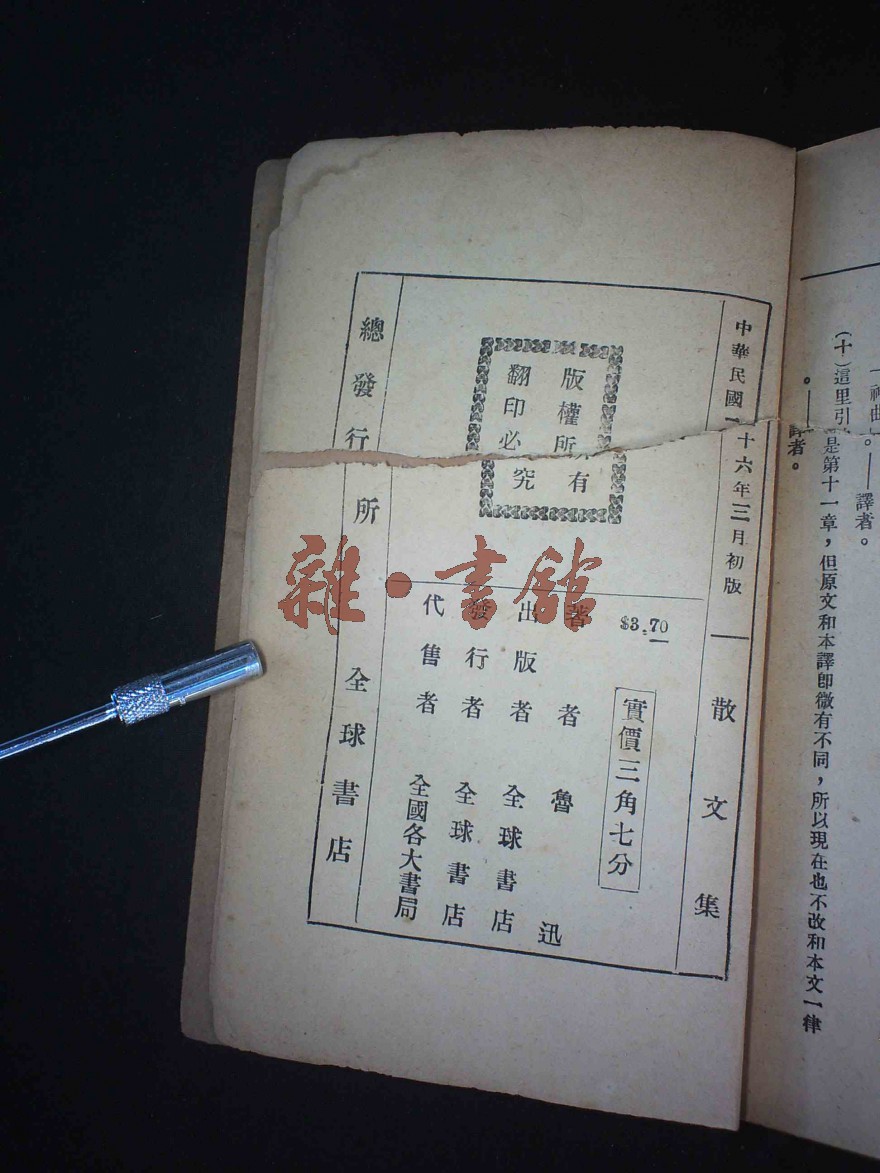 「神曲」。——譯者。
(十)這里引 是第十一章,但原文和本譯卽微有不同,所以現在也不改和本文一律
。——譯者。
中華民國 十六年三月初版
散文集
$3.70
實價三角七分
版權所有
翻印必究
著者 魯迅
出版者 全球書店
發行者 全球書店
代售者 全國各大書局
總發行所 全球書店
雜·書館